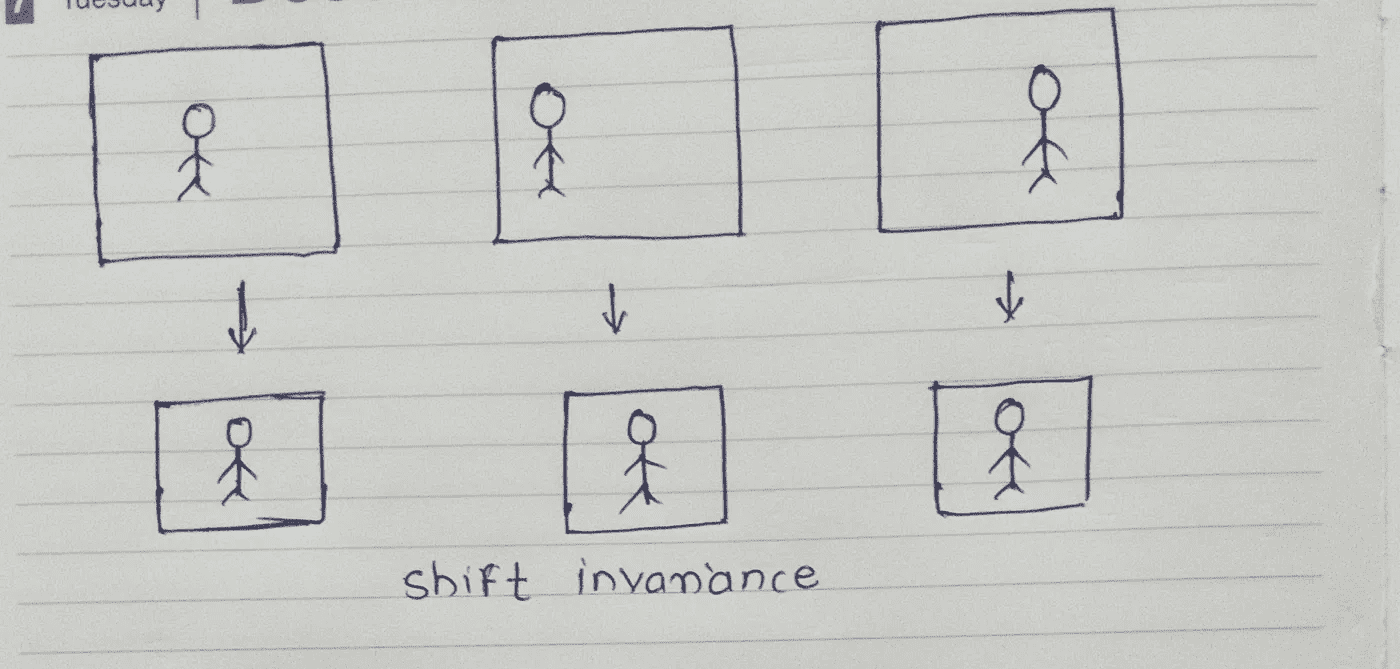 Tuesday
shift invariance